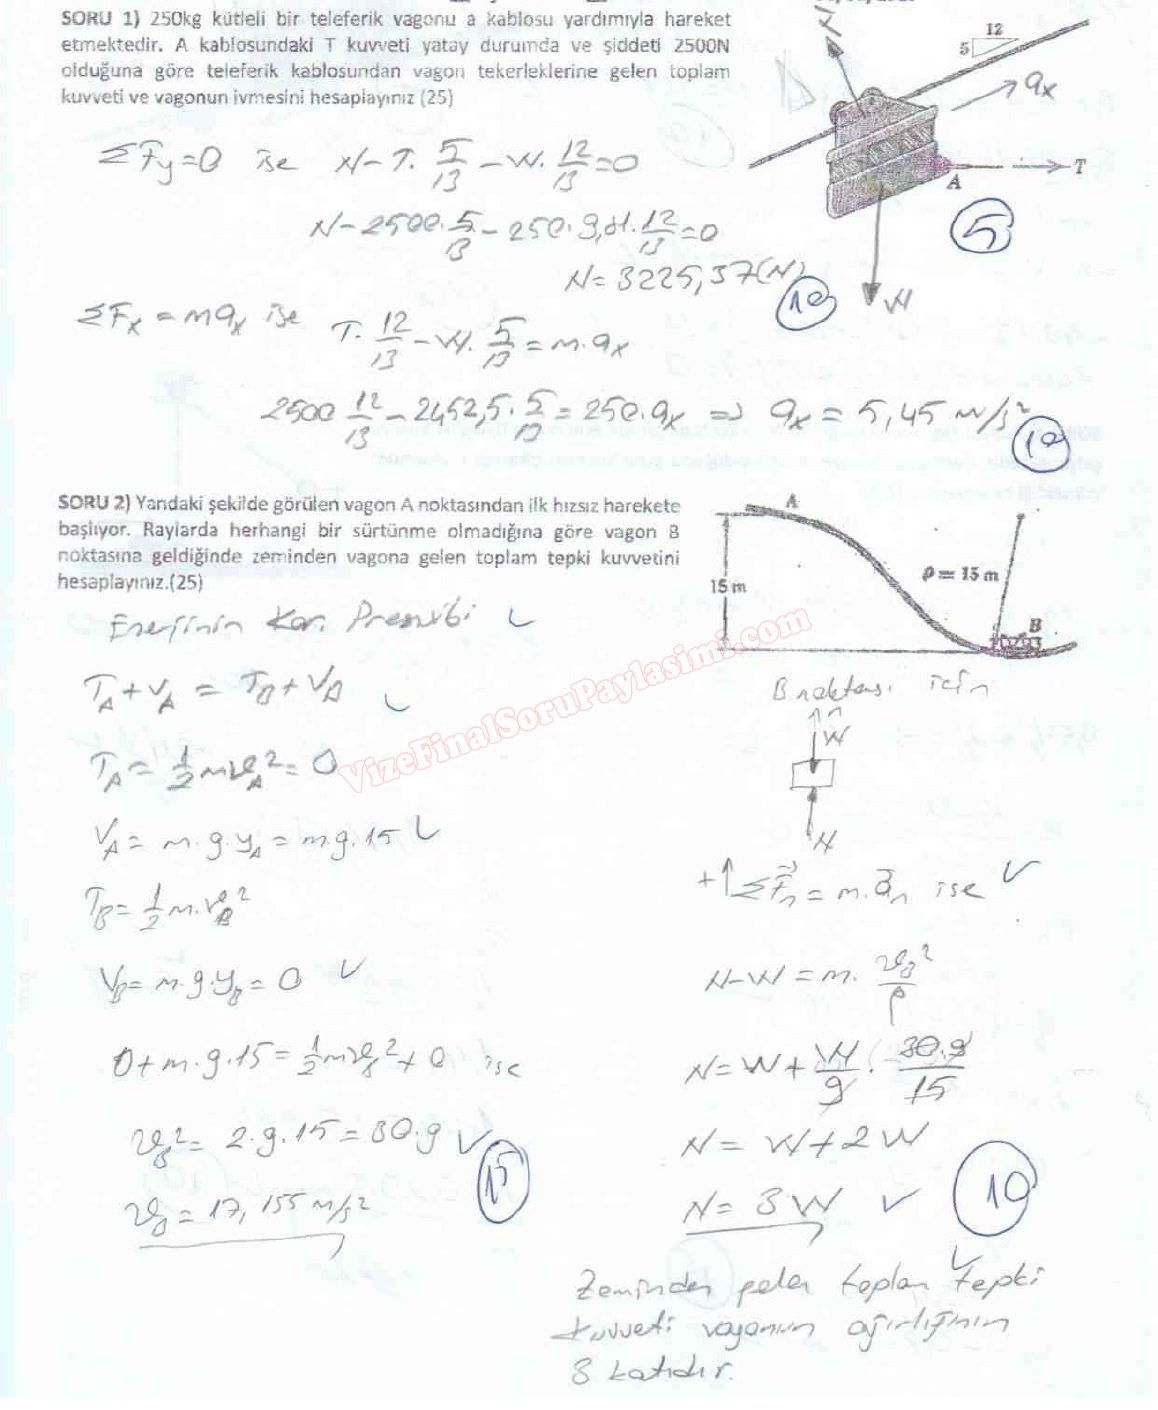 SORU 1) 250kg kütleli bir teleferik vagonu a kablosu yardımıyla hareket
etmektedir. A kablosundaki T kuvveti yatay durumda ve şiddeti 2500N
olduğuna göre teleferik kablosundan vagon tekerleklerine gelen toplam
kuvveti ve vagonun ivmesini hesaplayınız (25)
N
12
5
ax
T
A
W
5
ΣFy=0 ise N-T. 5/13 - W. 12/13 =0
N-2500. 5/13 - 250.9,81. 12/13 =0
N= 3225,37(N)
10
ΣFx = max ise T. 12/13 - W. 5/13 = m.ax
2500 12/13 - 2452,5. 5/13 = 250.ax ⇒ ax = 5,45 m/s²
10
SORU 2) Yandaki şekilde görülen vagon A noktasından ilk hızsız harekete
başlıyor. Raylarda herhangi bir sürtünme olmadığına göre vagon B
noktasına geldiğinde zeminden vagona gelen toplam tepki kuvvetini
hesaplayınız.(25)
A
15 m
ρ = 15 m
B
Enerjinin Kor. Prensibi
TA+VA = TB+VB
TA = 1/2 mvA² = 0
VA = m.g.yA = mg.15
TB = 1/2 m.vB²
VB = m.g.yB = 0
0+m.g.15 = 1/2 mvB² + 0 ise
vB² = 2.g.15 = 30.g
15
vB = 17,155 m/s²
B noktası için
n
W
N
+↑ΣFn = m.an ise
N-W = m. vB²/ρ
N = W + W/g . 30.g/15
N = W+2W
N = 3W
10
Zeminden gelen toplam tepki
kuvveti vagonun ağırlığının
3 katıdır.
VizeFinalSoruPaylasimi.com